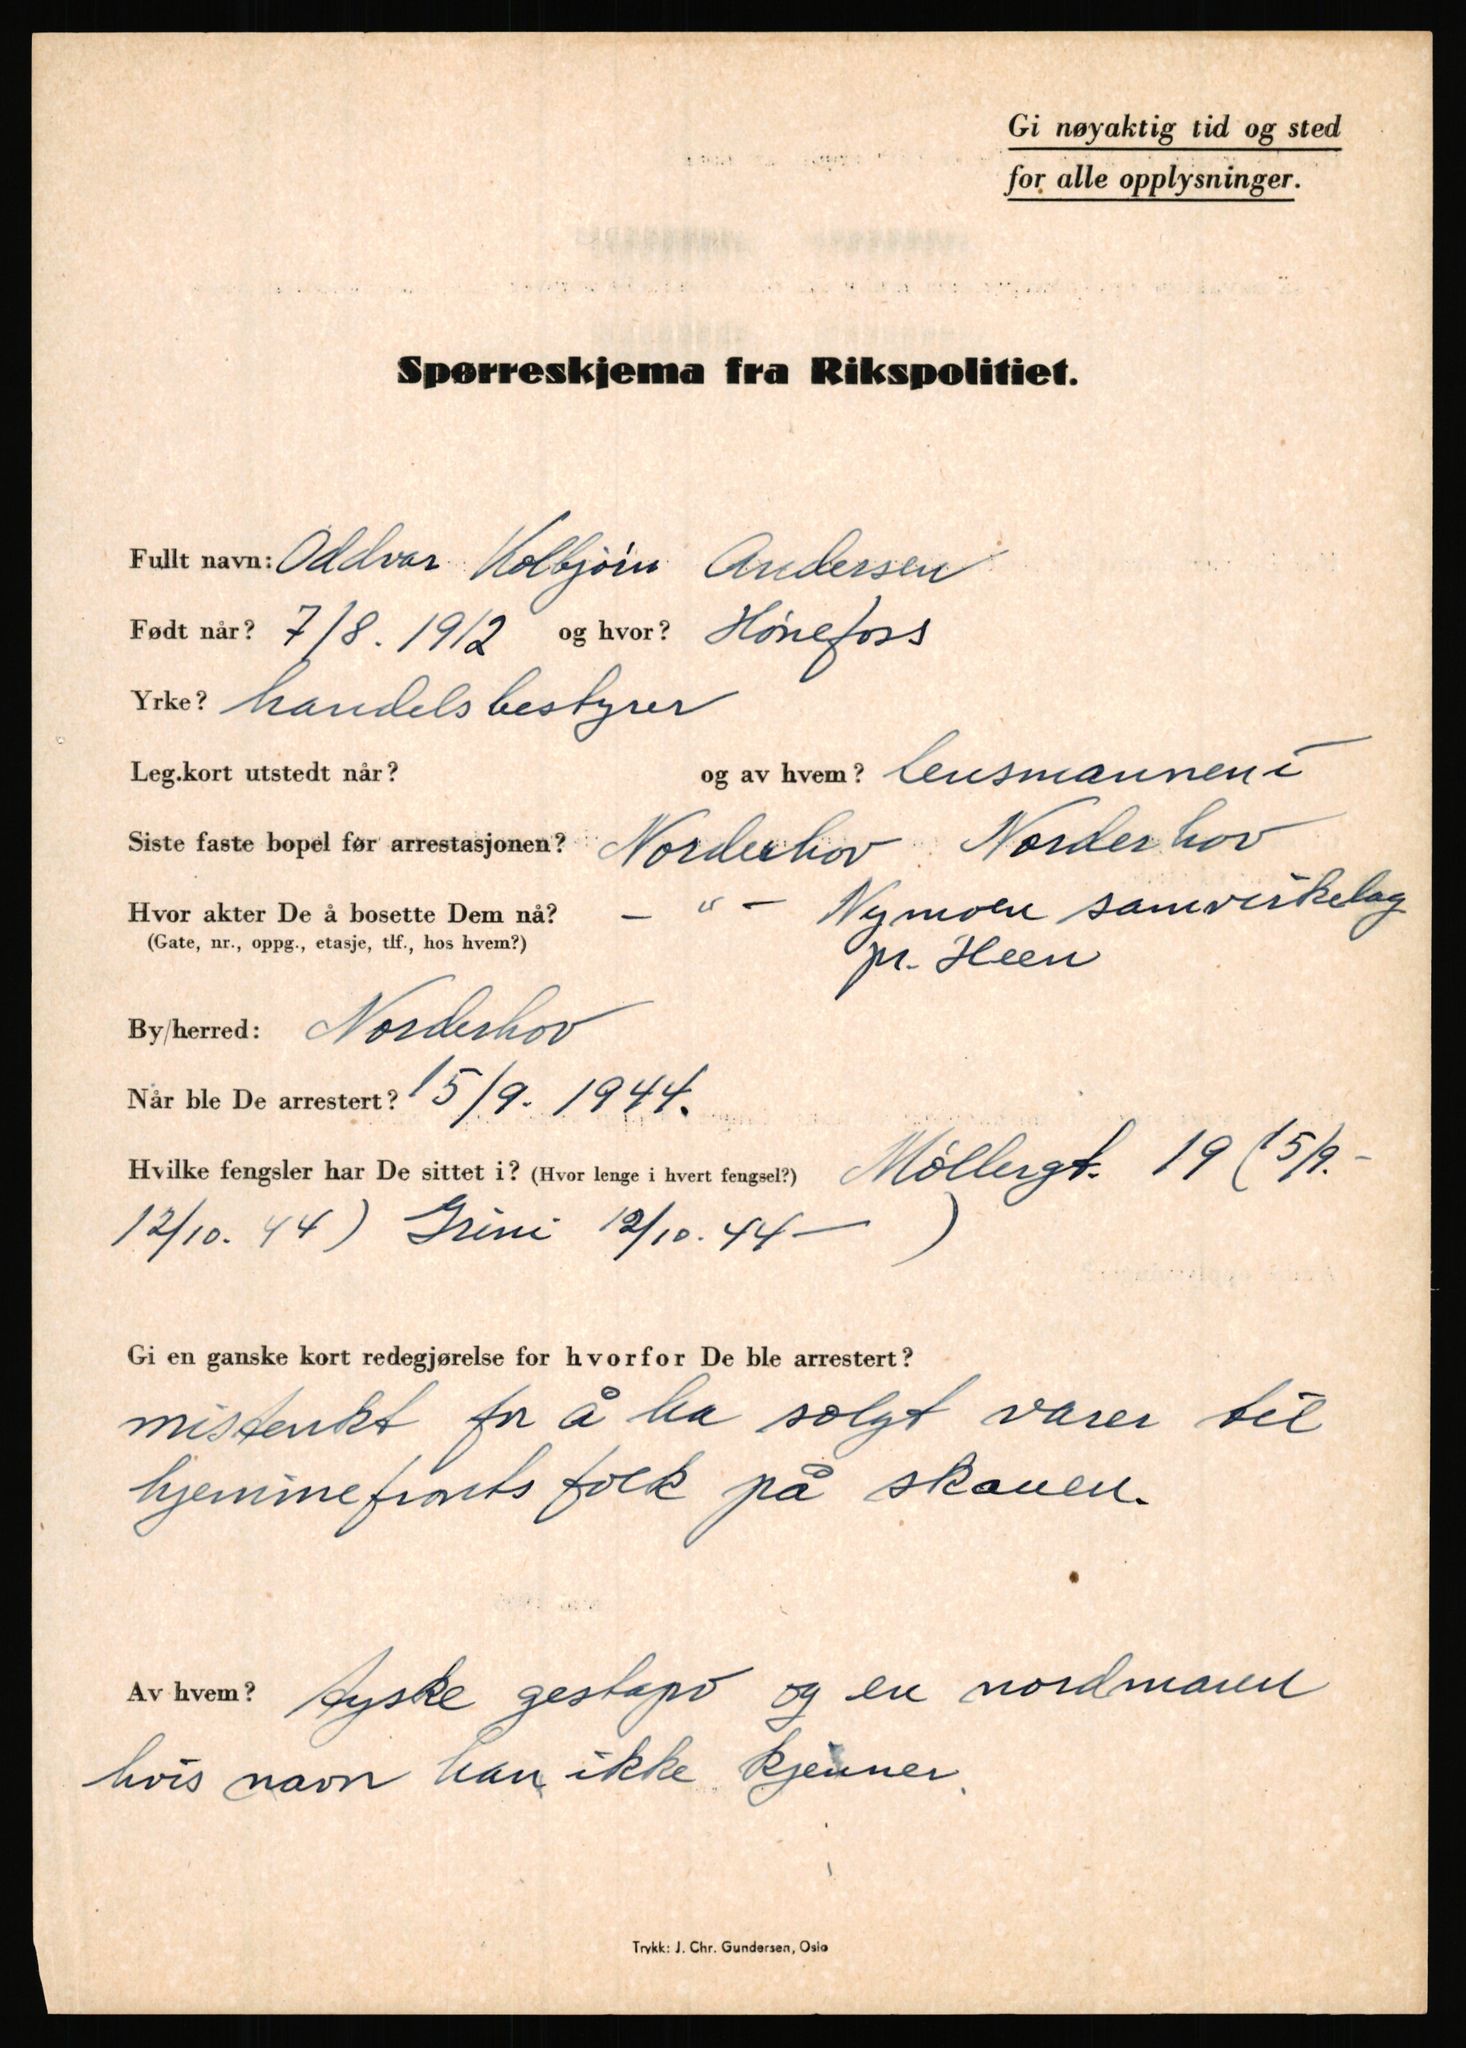 Gi nøyaktig tid og sted
for alle opplysninger.
Spørreskjema fra Rikspolitiet.
Fullt navn: Oddvar Kolbjörn Andersen
Født når? 7/8. 1912 og hvor? Hönefoss
Yrke? handelsbestyrer
Leg.kort utstedt når? og av hvem? lensmannen i
Siste faste bopel før arrestasjonen? Norderhov Norderhov
Hvor akter De å bosette Dem nå? — " — Nymoen samvirkelag
(Gate, nr., oppg., etasje, tlf., hos hvem?) pr. Heen
By/herred: Norderhov
Når ble De arrestert? 15/9. 1944.
Hvilke fengsler har De sittet i? (Hvor lenge i hvert fengsel?) Möllergt. 19 (15/9. –
12/10. 44) Grini 12/10. 44 — )
Gi en ganske kort redegjørelse for hvorfor De ble arrestert?
mistenkt for å ha solgt varer til
hjemmefronts folk på skauen.
Av hvem? tyske gestapo og en nordmann
hvis navn han ikke kjenner.
Trykk: J. Chr. Gundersen, Oslo